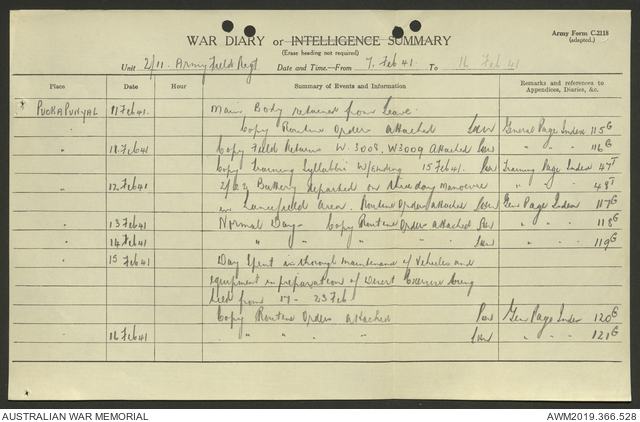 Army Form C.2118
(adapted.)
WAR DIARY or INTELLIGENCE SUMMARY
(Erase heading not required)
Unit 2/11. Army Field Regt. Date and Time—From 7. Feb 41. To 16 Feb 41
Place Date Hour Summary of Events and Information Remarks and references to Appendices, Diaries, &c.
PUCKAPUNYAL 11 Feb 41. Main Body returned from Leave.
Copy Routine Orders attached General Page Index 115G
" 11 Feb 41 Copy Field Returns W.3008, W3009 Attached " " " 116G
Copy Training Syllabus W/Ending 15 Feb 41. Training Page Index 47T
" 12 Feb 41 2/22 Battery departed on three day Manoeuvre " " " 48T
in Lancefield Area. Routine Orders attached Gen Page Index 117G
" 13 Feb 41 Normal Day - Copy Routine Orders attached " " " 118G
" 14 Feb 41 " " " " " " " " 119G
" 15 Feb 41 Day Spent in thorough maintenance of vehicles and
equipment in preparation of Desert Exercise being
held from 17 - 23 Feb
Copy Routine Orders attached Gen Page Index 120G
" 16 Feb 41 " " " " " " " 121G
AUSTRALIAN WAR MEMORIAL AWM2019.366.528